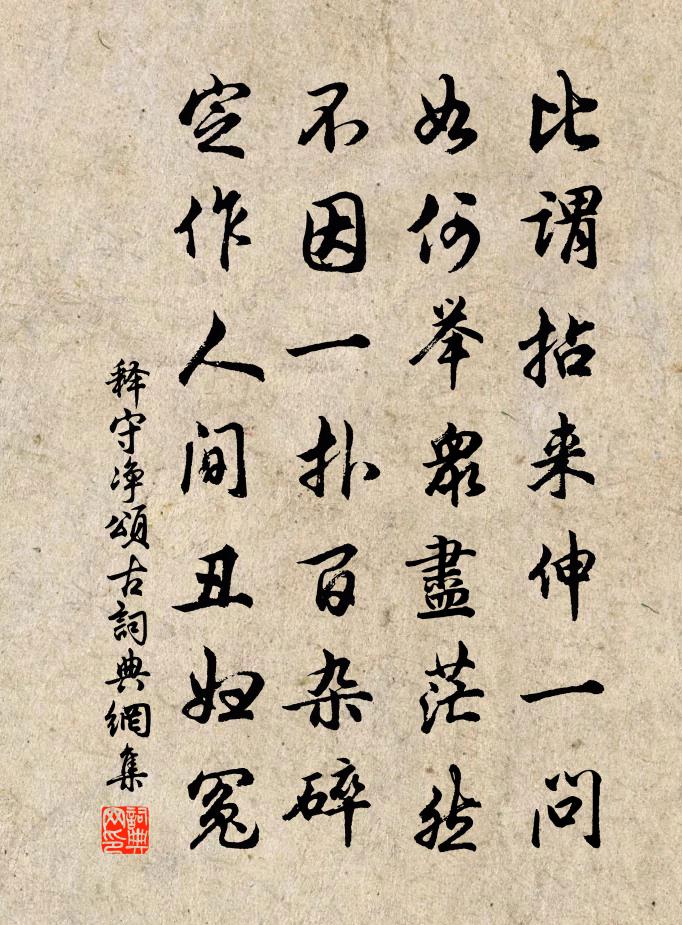 比谓拈来伸一问
如何举衆盡茫然
不因一扑百杂碎
定作人间丑妇冤
释守净頌古詞典網集
詞典网印